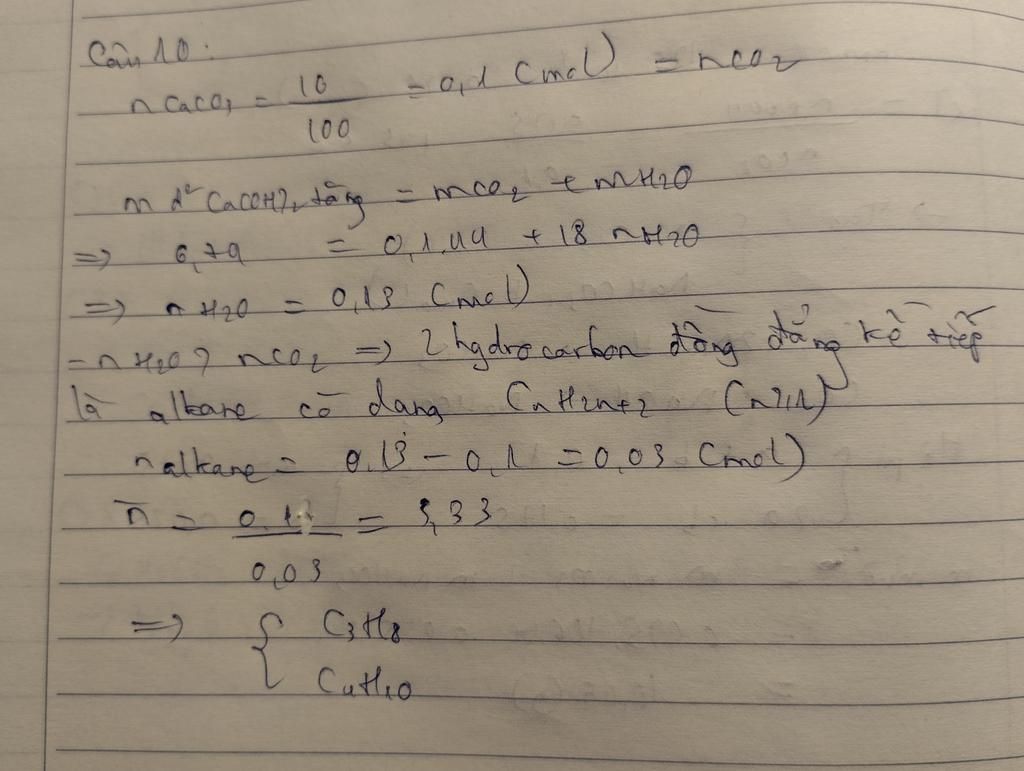 Câu 10:
nCaCO3 = 10/100 = 0,1 (mol) = nCO2
m d² Ca(OH)2 tăng = mCO2 + mH2O
=> 6,74 = 0,1.44 + 18 nH2O
=> nH2O = 0,13 (mol)
=> nH2O > nCO2 => 2 hydrocarbon đồng đẳng kế tiếp
là alkane có dạng CnH2n+2 (n≥1)
nalkane = 0,13 - 0,1 = 0,03 (mol)
n̄ = 0,1/0,03 = 3,33
=> { C3H8
C4H10